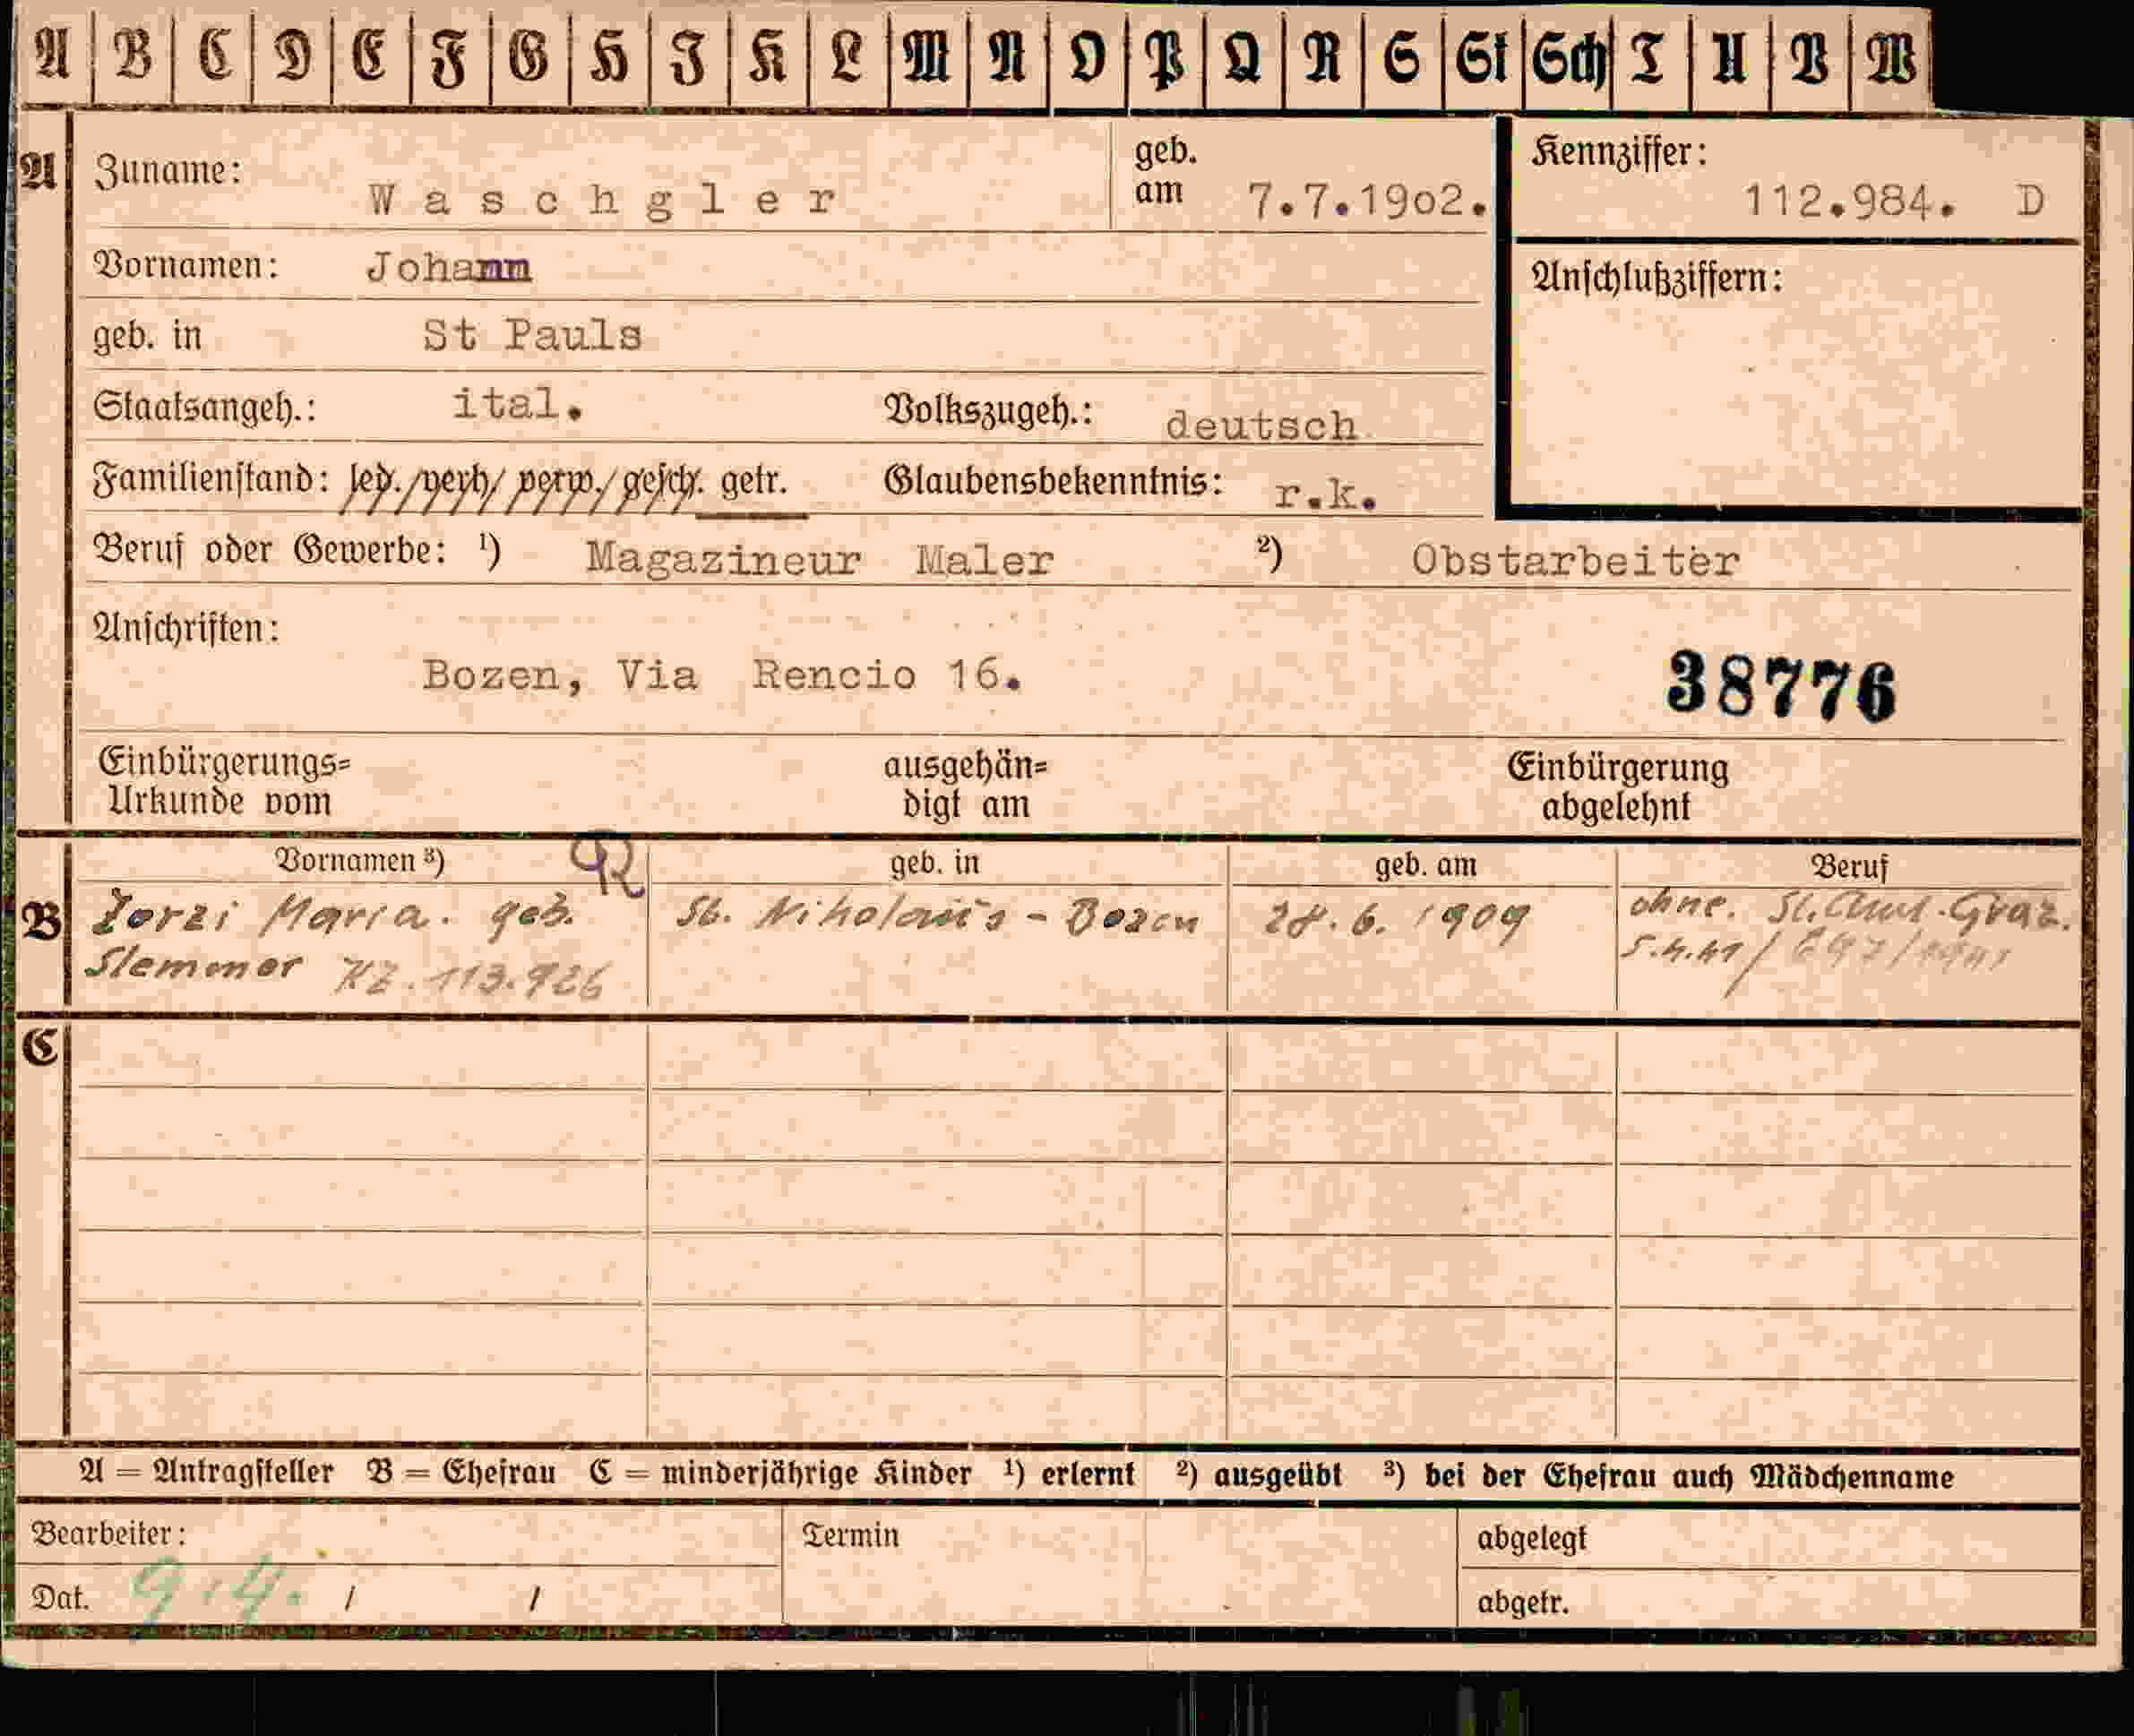 A B C D E F G H I K L M N O P Q R S St Sch T U V W
A Zuname: Waschgler geb. am 7.7.1902. Kennziffer: 112.984. D
Vornamen: Johann Anschlußziffern:
geb. in St Pauls
Staatsangeh.: ital. Volkszugeh.: deutsch
Familienstand: led./verh/ verw./gesch. getr. Glaubensbekenntnis: r.k.
Beruf oder Gewerbe: ¹) Magazineur Maler ²) Obstarbeiter
Anschriften:
Bozen, Via Rencio 16.
38776
Einbürgerungs= ausgehän= Einbürgerung
Urkunde vom digt am abgelehnt
Vornamen ³) R geb. in geb. am Beruf
B Zorzi Maria. geb. St. Nikolaus - Bozen 28.6.1909 ohne. St. Amt. Graz.
Stemmer KZ. 113.926 5.4.41/
C
A = Antragsteller B = Ehefrau C = minderjährige Kinder ¹) erlernt ²) ausgeübt ³) bei der Ehefrau auch Mädchenname
Bearbeiter: Termin abgelegt
Dat. 9.4. / / abgetr.